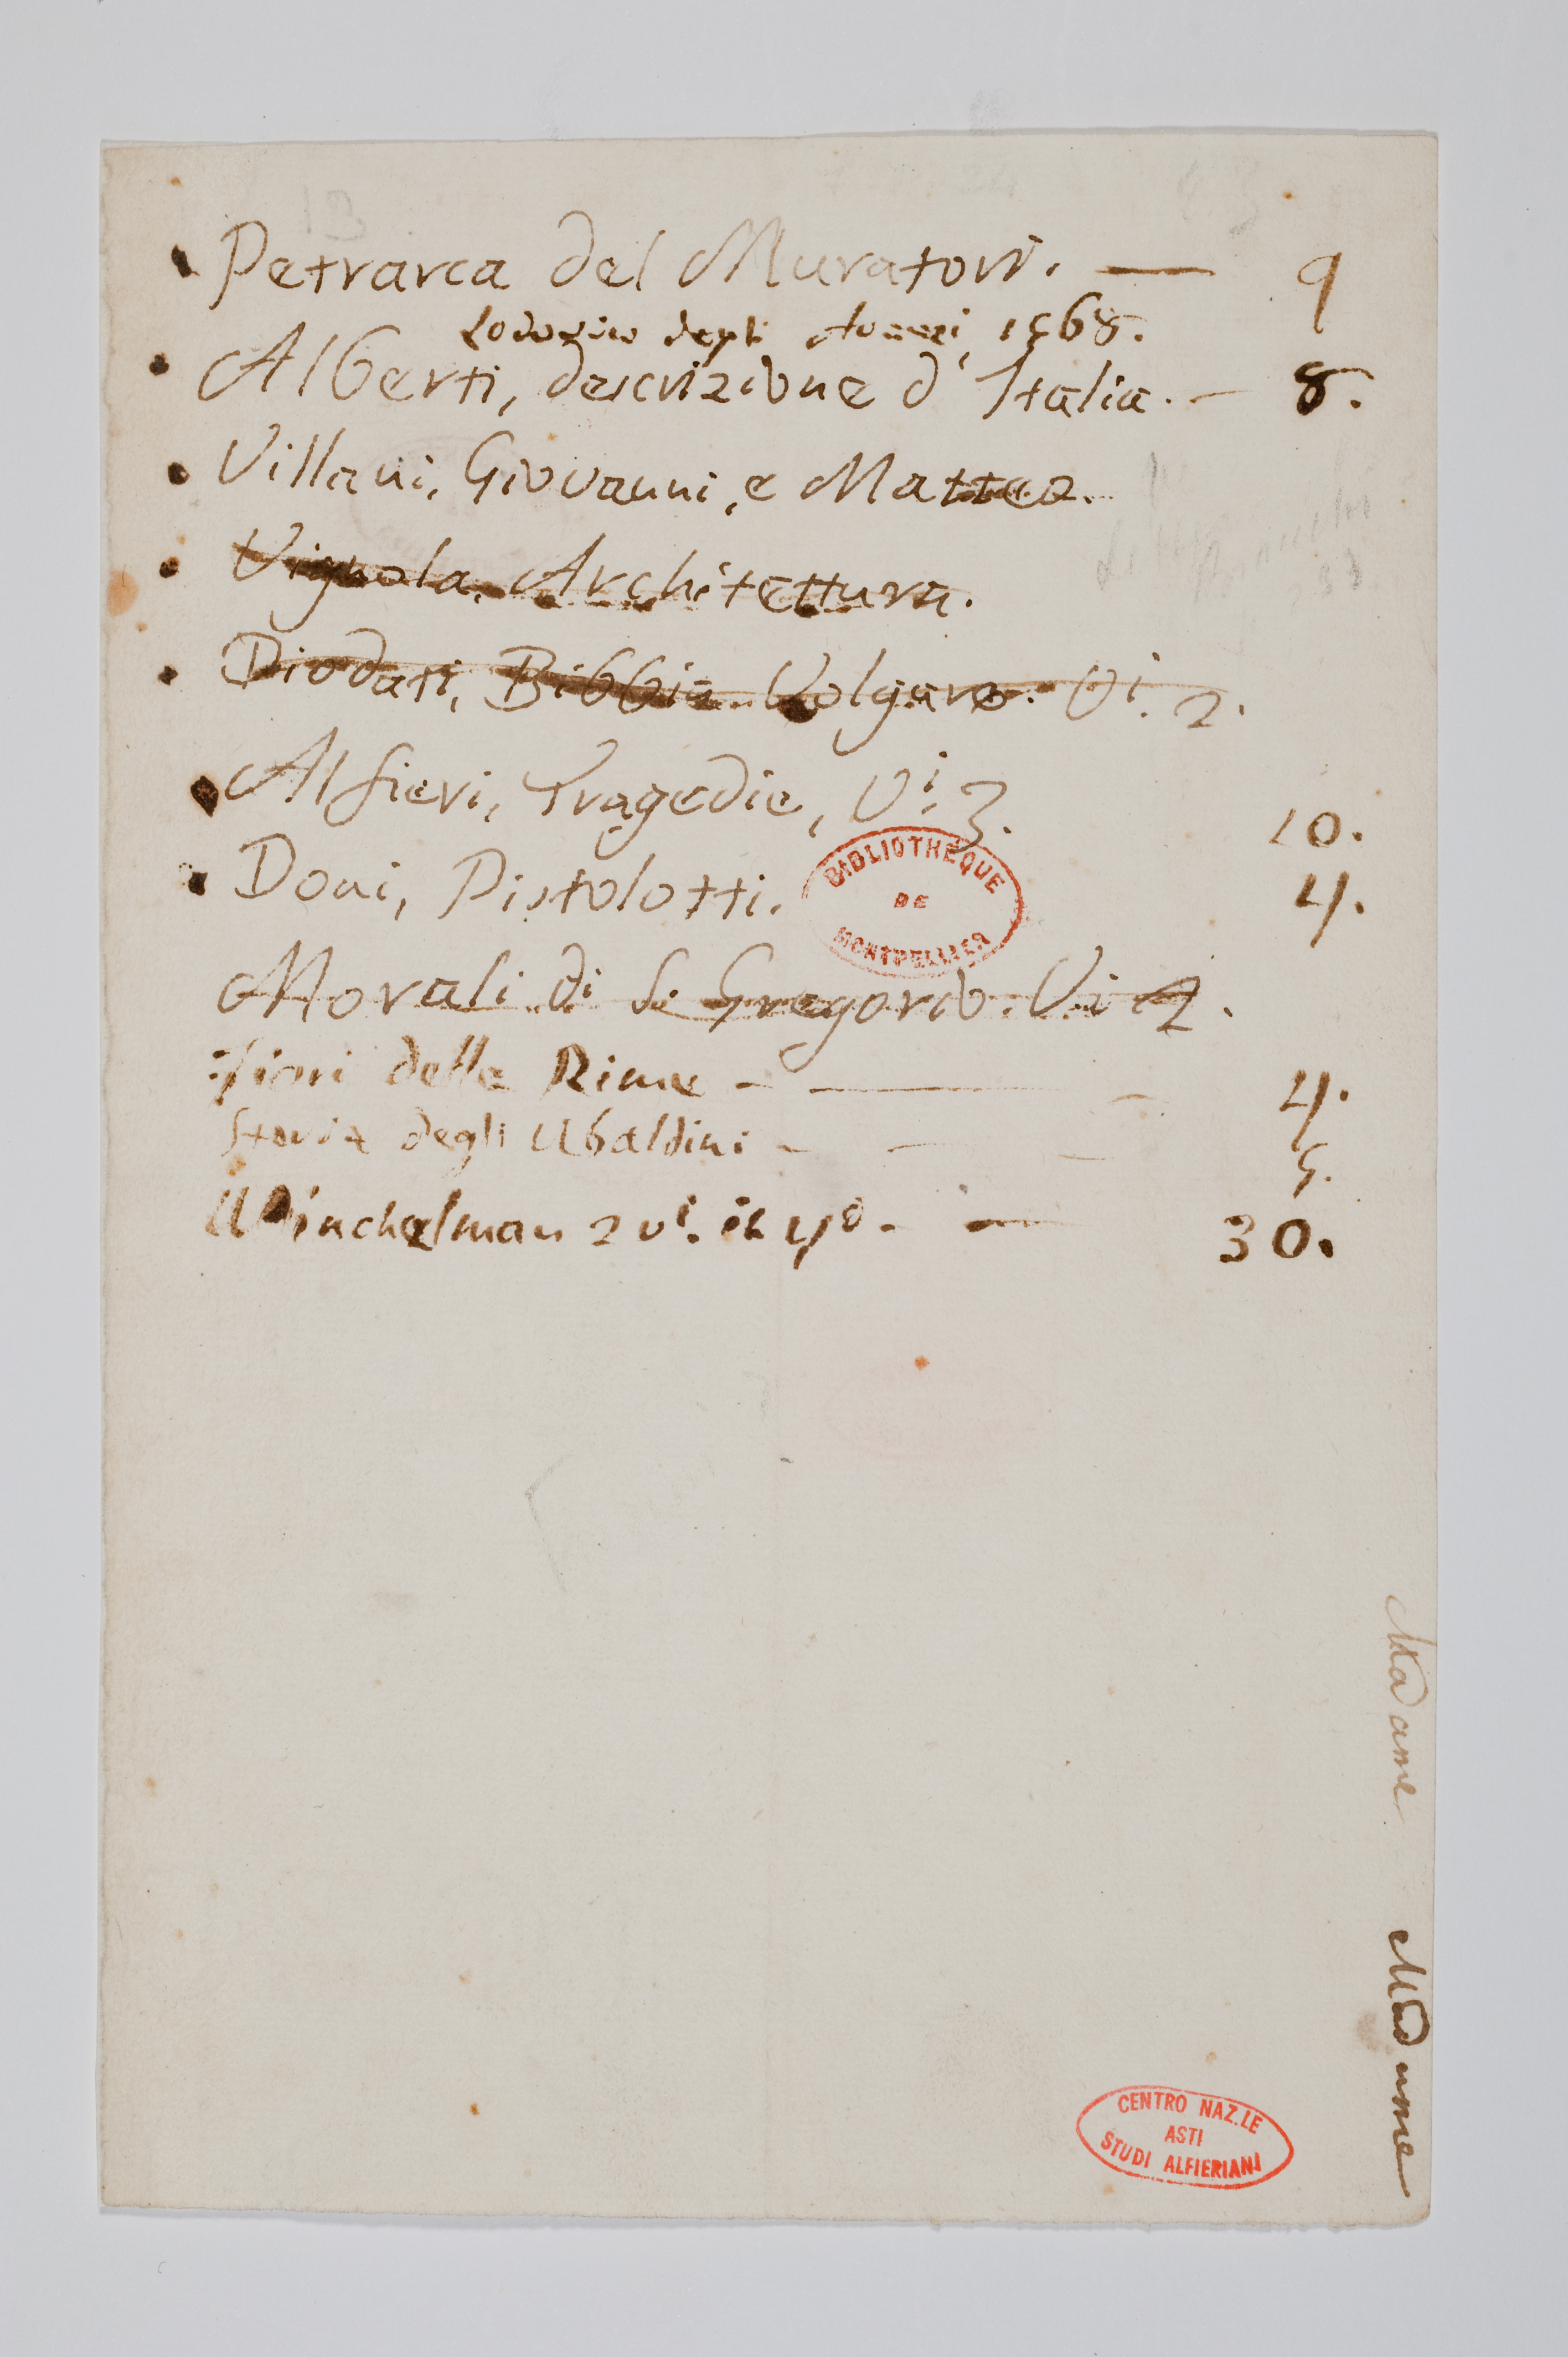 Petrarca del Muratori. — 9
Lodovico degli Avanzi, 1568.
Alberti, descrizione d'Italia. — 8.
Villani, Giovanni, e Matteo.
Vignola, Architettura.
Diodati, Bibbia Volgare. Vi. 2.
Alfieri, Tragedie, Vi. 3. 10.
Doni, Pistolotti. 4.
BIBLIOTHEQUE
DE
MONTPELLIER
Morali di S. Gregorio. Vi 4.
Fiori delle Rime - — - 4.
Storia degli Ubaldini - - - 5.
Winchelman 2 vi. in 4o. - — 30.
Madame
Madame
CENTRO NAZ.LE
ASTI
STUDI ALFIERIANI